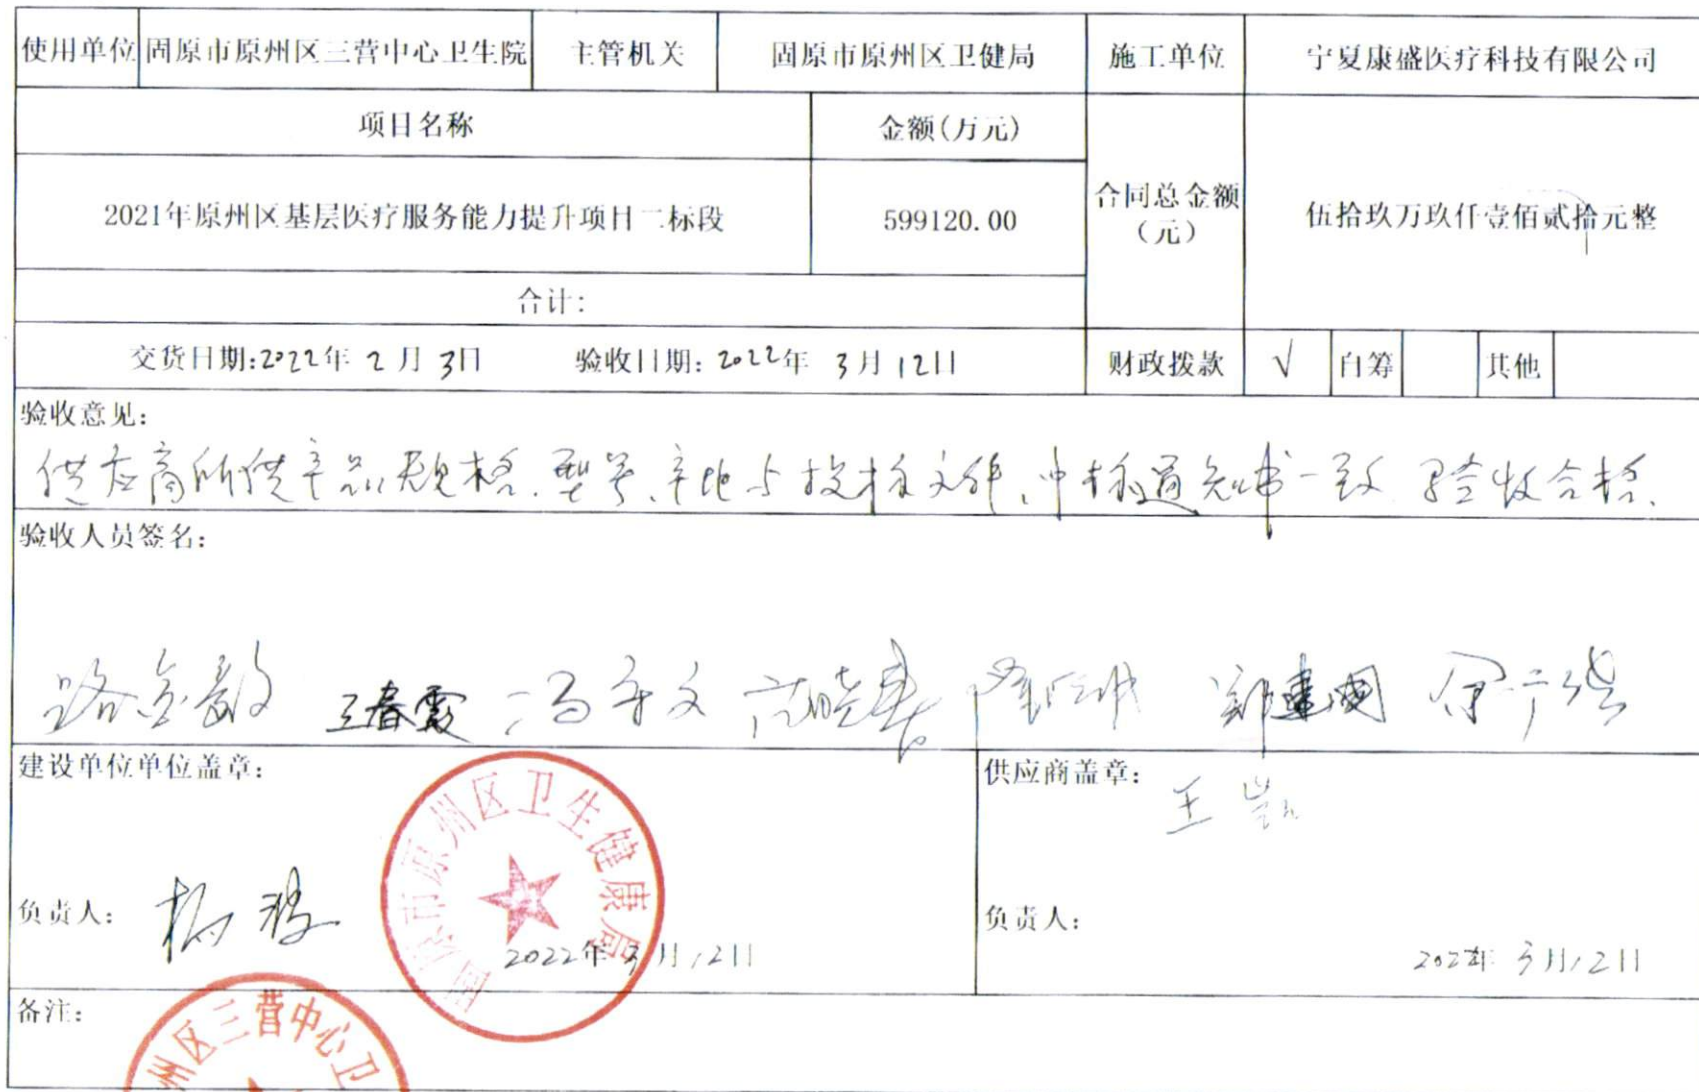 使用单位 固原市原州区三营中心卫生院 主管机关 固原市原州区卫健局 施工单位 宁夏康盛医疗科技有限公司
项目名称 金额(万元)
合同总金额(元) 伍拾玖万玖仟壹佰贰拾元整
2021年原州区基层医疗服务能力提升项目二标段 599120.00
合计:
交货日期:2022年 2月 3日 验收日期: 2022年 3月12日 财政拨款 √ 自筹 其他
验收意见:
供应商所供产品规格、型号、产地与投标文件、中标通知书一致 验收合格.
验收人员签名:
王春霞 郭建国
建设单位单位盖章:
供应商盖章:
王凯
固原市原州区卫生健康局
负责人:
2022年3月12日
负责人:
2022年 3月12日
备注:
州区三营中心卫